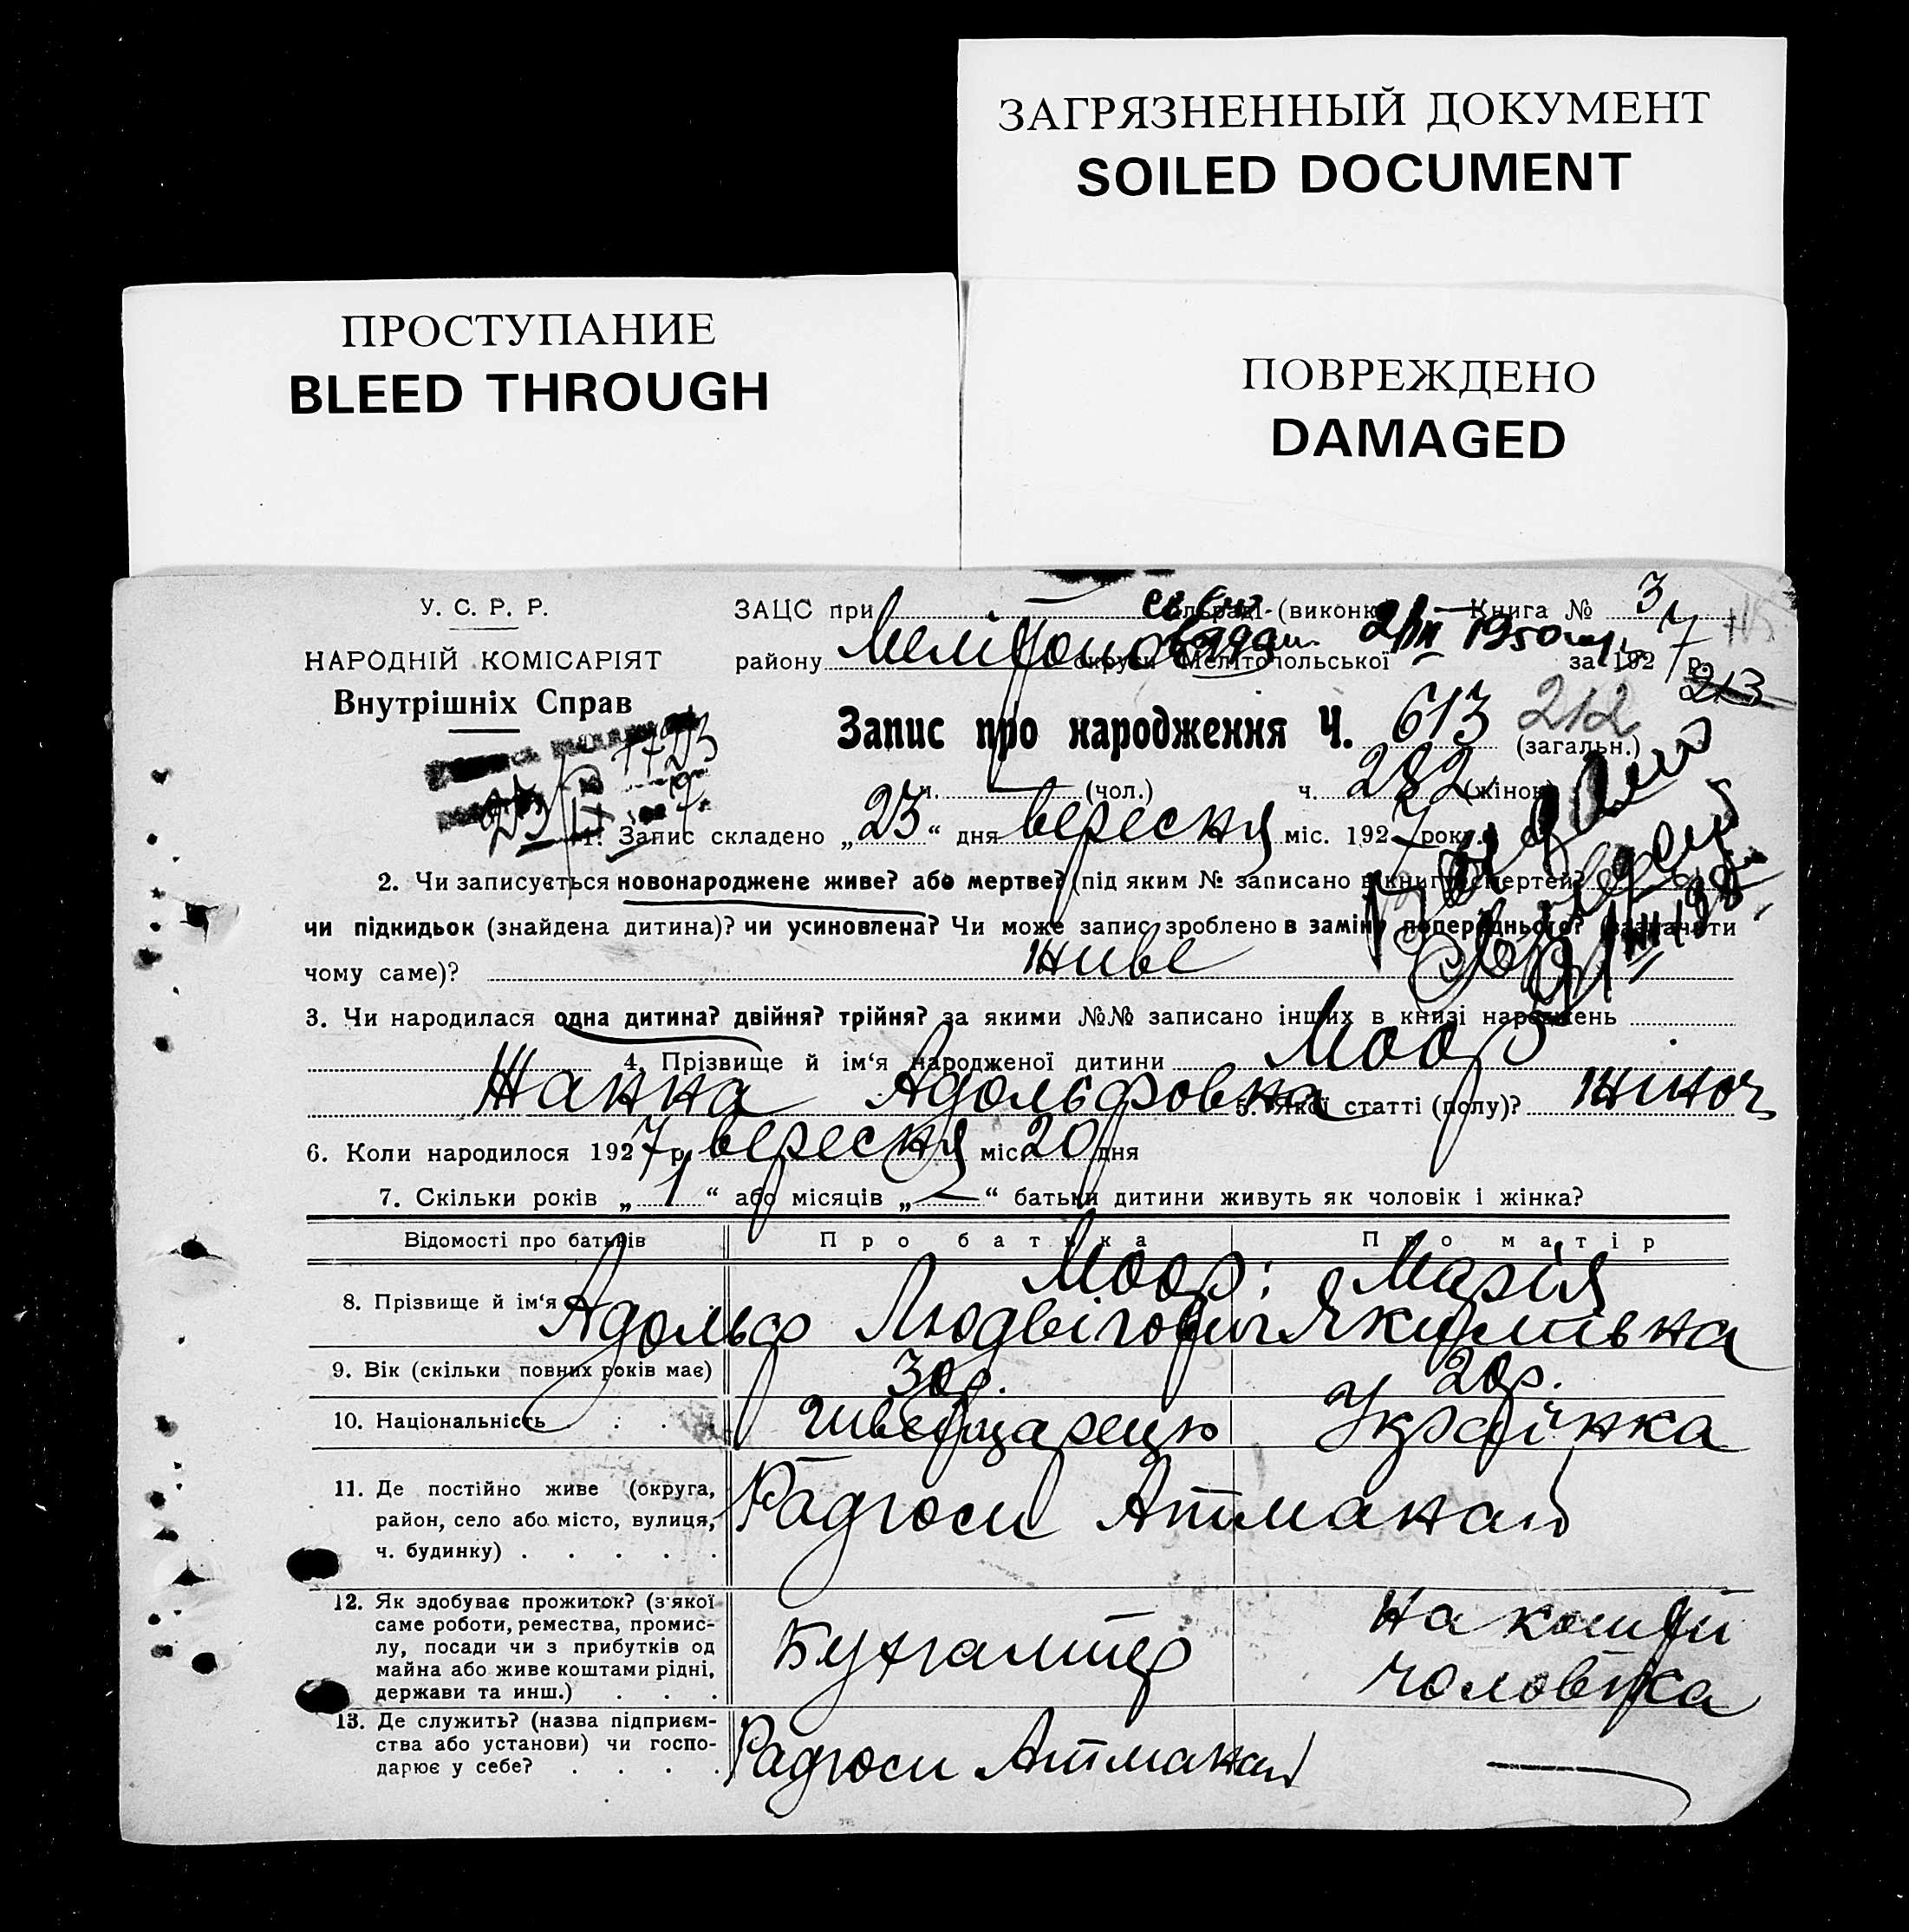 ЗАГРЯЗНЕННЫЙ ДОКУМЕНТ
SOILED DOCUMENT
ПРОСТУПАНИЕ
BLEED THROUGH
ПОВРЕЖДЕНО
DAMAGED
У. С. Р. Р.
НАРОДНІЙ КОМІСАРІЯТ
Внутрішніх Справ
ЗАЦС при сільраді (виконк Книга № 3
району округи Мелітопольської за 1927 р.
213
Запис про народження Ч. 613 212
(загальн.)
ч. (чол.) ч. 282 (жінок)
1. Запис складено „23“ дня вересня міс. 1927 року.
2. Чи записується новонароджене живе? або мертве? (під яким № записано в книгу смертей?
чи підкидьок (знайдена дитина)? чи усиновлена? Чи може запис зроблено в заміну попереднього? (зазначити
чому саме)? живе
3. Чи народилася одна дитина? двійня? трійня? за якими №№ записано інших в книзі народжень
4. Прізвище й ім‘я народженої дитини Моор
Жанна Адольфовна 5. Якої статті (полу)? жіноч
6. Коли народилося 1927 р. вересня міс. 20 дня
7. Скільки років „1“ або місяців „2“ батьки дитини живуть як чоловік і жінка?
Відомості про батьків Про батька Про матір
8. Прізвище й ім‘я Моор: Марія
Адольф Людвігович Якимівна
9. Вік (скільки повних років має) 30 р. 20 р.
10. Національність Швейцарець Українка
11. Де постійно живе (округа,
район, село або місто, вулиця,
ч. будинку) Радгосп Атманай
12. Як здобуває прожиток? (з якої
саме роботи, ремества, промис-
лу, посади чи з прибутків од
майна або живе коштами рідні,
держави та инш.) Бухгалтер на кошти
чоловіка
13. Де служить? (назва підприєм-
ства або установи) чи госпо-
дарює у себе? Радгосп Атманай